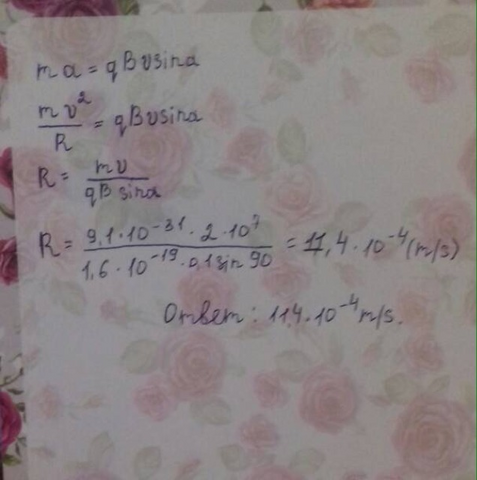 ma = qBυsina
mυ²/R = qBυsina
R = mυ/qBsina
R = 9,1·10⁻³¹·2·10⁷/1,6·10⁻¹⁹·0,1sin90 = 11,4·10⁻⁴(m/s)
Ответ: 11,4·10⁻⁴m/s.